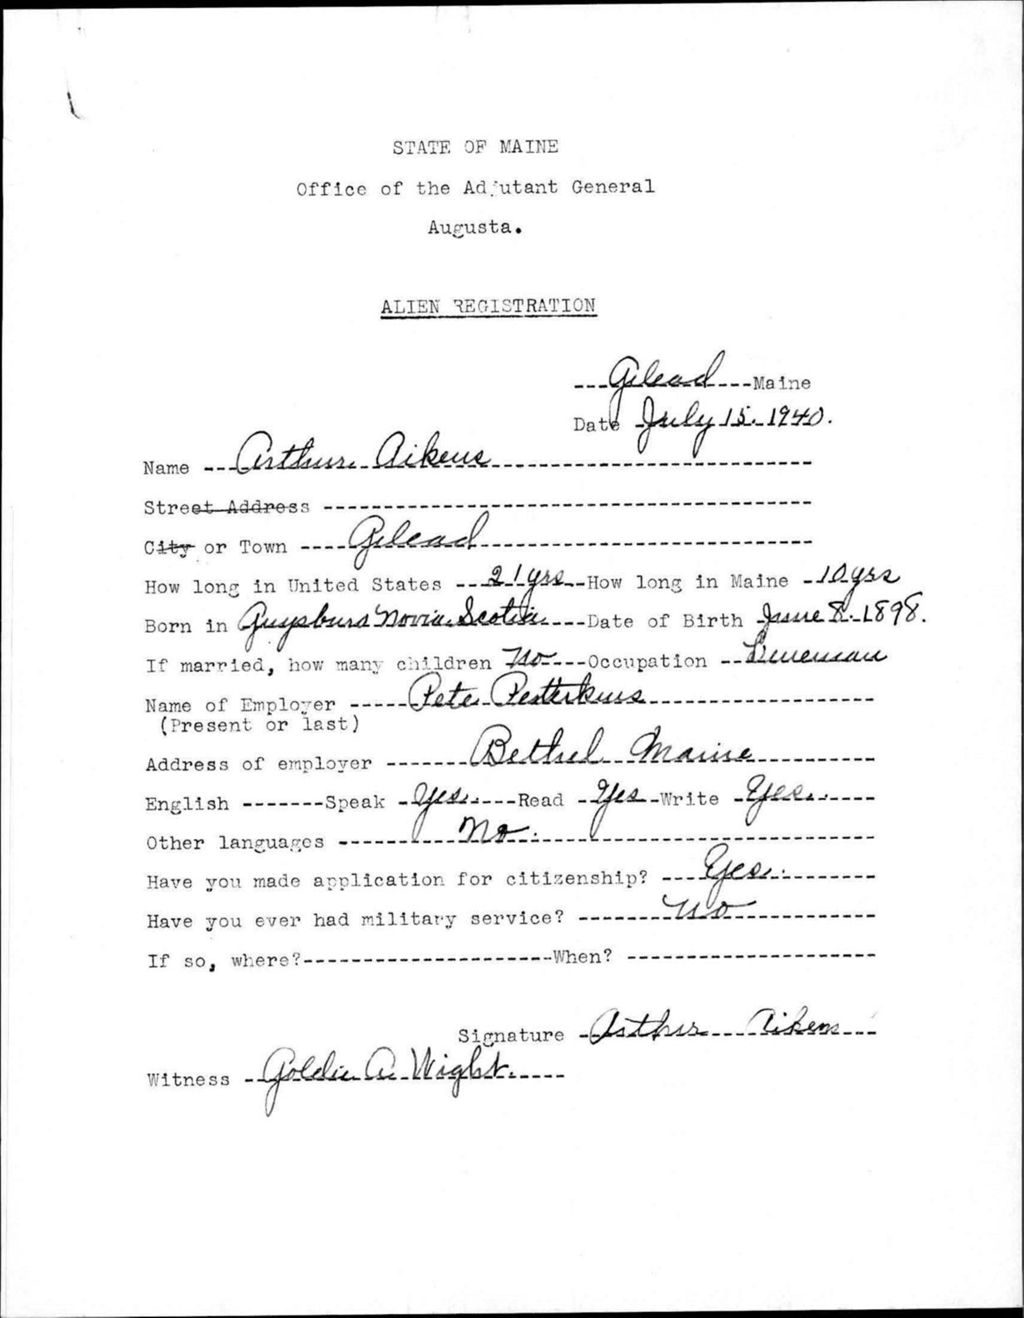 STATE OF MAINE
Office of the Adjutant General
Augusta.
ALIEN REGISTRATION
---Gilead---Maine
Date July 15, 1940.
Name ---Arthur Aikens
Street Address
City or Town ----Gilead
How long in United States ---21 yrs--How long in Maine -10 yrs
Born in Guysburo Novia Scotia----Date of Birth June 8, 1898.
If married, how many children No----Occupation --
Name of Employer -----Pete
(Present or last)
Address of employer -------Bethel Maine
English -------Speak -Yes.----Read -Yes--Write -Yes.
Other languages -------No.
Have you made application for citizenship? ---Yes.
Have you ever had military service? -------No
If so, where?---------------------When? ---------------------
Signature -Arthur Aikens
Witness --Goldie A. Wight.